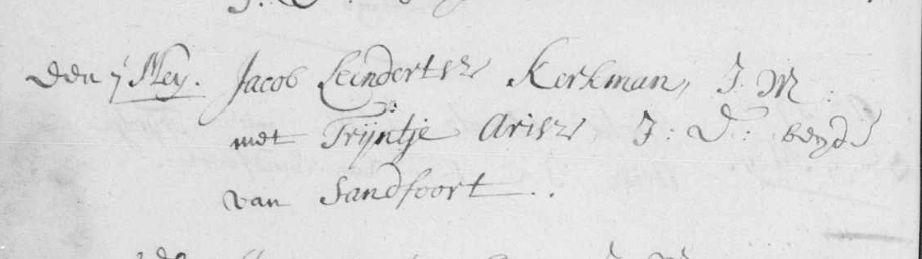 den 7 Mey. Jacob Leendertsz Kerkman, J. M:
met Trijntje Arisz J: D: beyde
van Sandfoort..